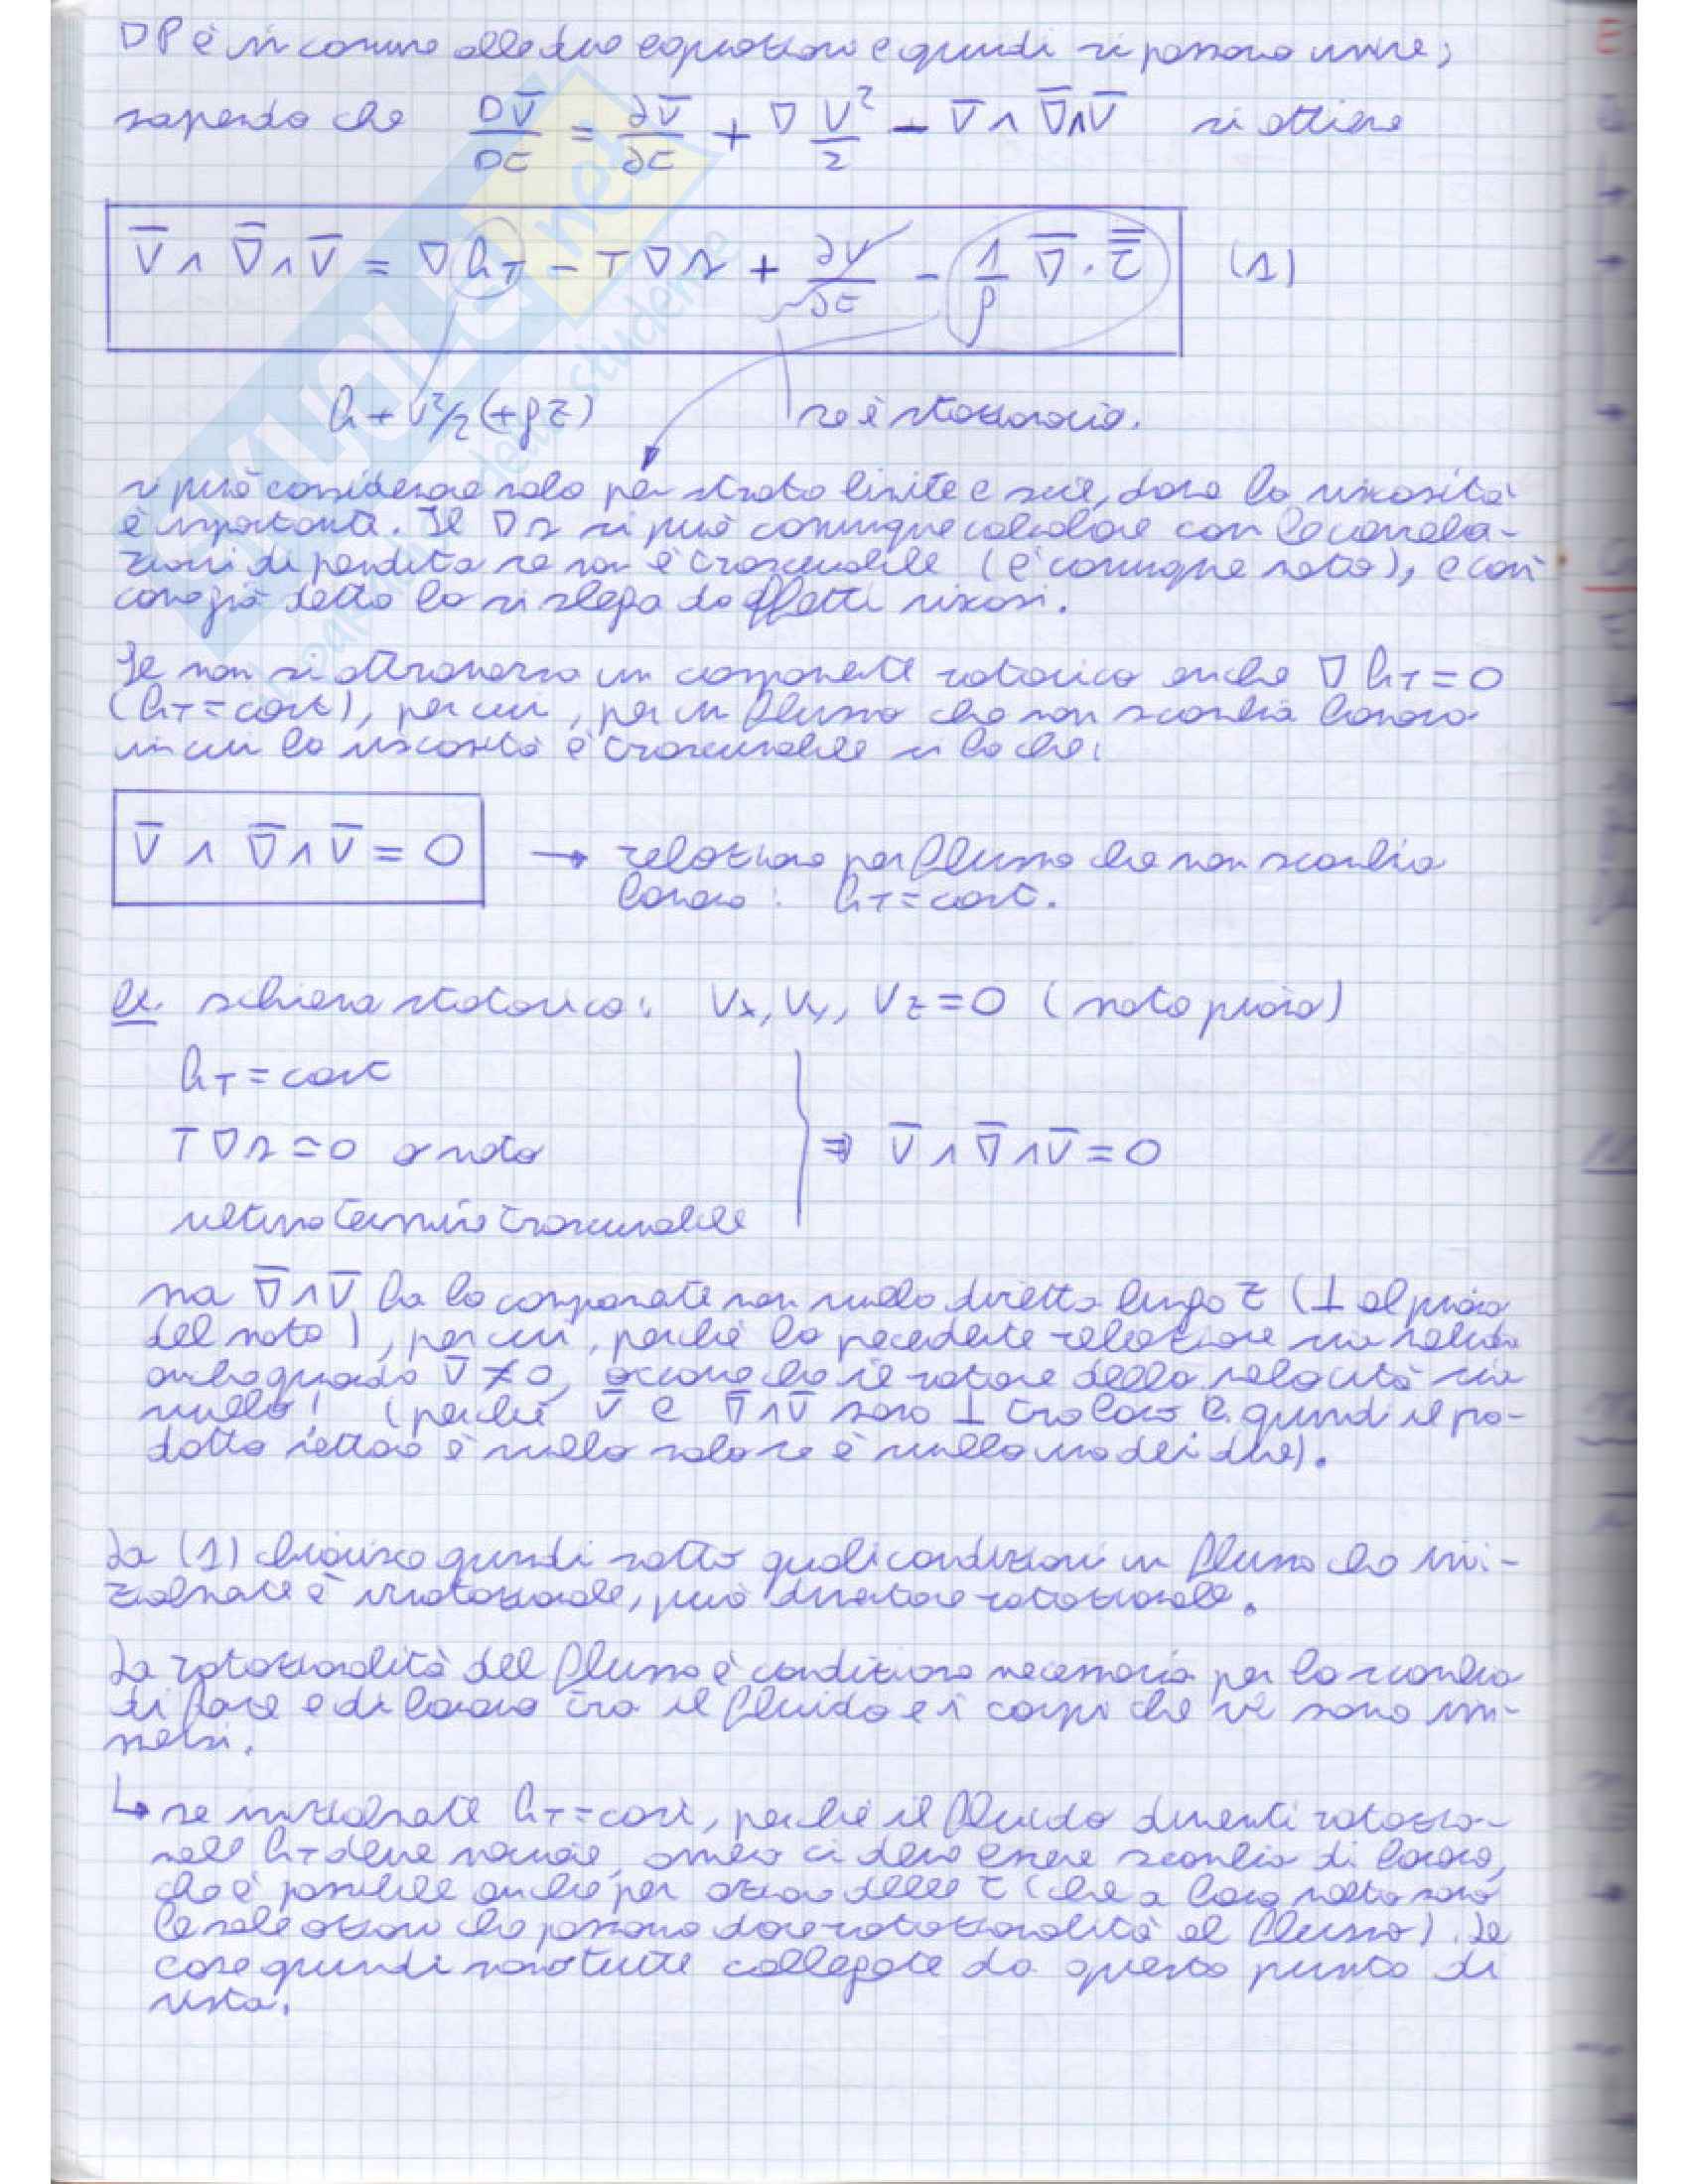 ∇P è in comune alle due equazioni e quindi si possono unire;
sapendo che DV̄/Dt = ∂V̄/∂t + ∇ V²/2 - V̄ ∧ ∇̄∧V̄ si ottiene
V̄ ∧ ∇̄ ∧ V̄ = ∇ h_T - T∇s + ∂V/∂t - 1/ρ ∇̄ · τ̿ (1)
h + V²/2 (+gz) se è stazionario.
si può considerare solo per strato limite e scie, dove la viscosità
è importante. Il ∇s si può comunque calcolare con le correla-
zioni di perdita se non è trascurabile (è comunque noto), e così
come già detto lo si slega da effetti viscosi.
Se non si attraversa un componente rotorico anche ∇h_T = 0
(h_T = cost), per cui, per un flusso che non scambia lavoro
in cui la viscosità è trascurabile si ha che:
V̄ ∧ ∇̄ ∧ V̄ = 0 → relazione per flusso che non scambia
lavoro: h_T = cost.
Es. schiera statorica: Vx, Vy, Vz = 0 (moto piano)
h_T = cost
T∇s ≃ 0 o noto ⇒ V̄ ∧ ∇̄ ∧ V̄ = 0
ultimo termine trascurabile
ma ∇̄∧V̄ ha la componente non nulla diretta lungo z (⊥ al piano
del moto), per cui, perché la precedente relazione sia valida
anche quando V̄ ≠ 0, occorre che il rotore della velocità sia
nullo! (perché V̄ e ∇̄∧V̄ sono ⊥ tra loro e quindi il pro-
dotto vettore è nullo solo se è nullo uno dei due).
La (1) chiarisce quindi sotto quali condizioni un flusso che ini-
zialmente è irrotazionale, può diventare rotazionale.
La rotazionalità del flusso è condizione necessaria per lo scambio
di forze e di lavoro tra il fluido e i corpi che vi sono im-
mersi.
↳ se inizialmente h_T = cost, perché il fluido diventi rotazio-
nale h_T deve variare, ovvero ci deve essere scambio di lavoro,
che è possibile anche per azione delle τ (che a loro volta sono
le sole azioni che possono dare rotazionalità al flusso). Le
cose quindi sono tutte collegate da questo punto di
vista.
SKUOLA.net
il paradiso dello studente